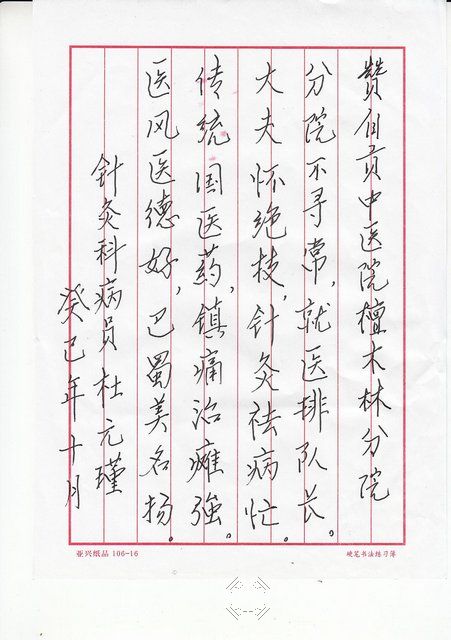 赞自贡中医院檀木林分院
分院不寻常，就医排队长。
大夫怀绝技，针灸祛病忙。
传统国医药，镇痛治瘫強。
医风医德好，巴蜀美名扬。
针灸科病员杜元瑾
癸巳年十月
亚兴纸品 106-16
硬笔书法练习簿